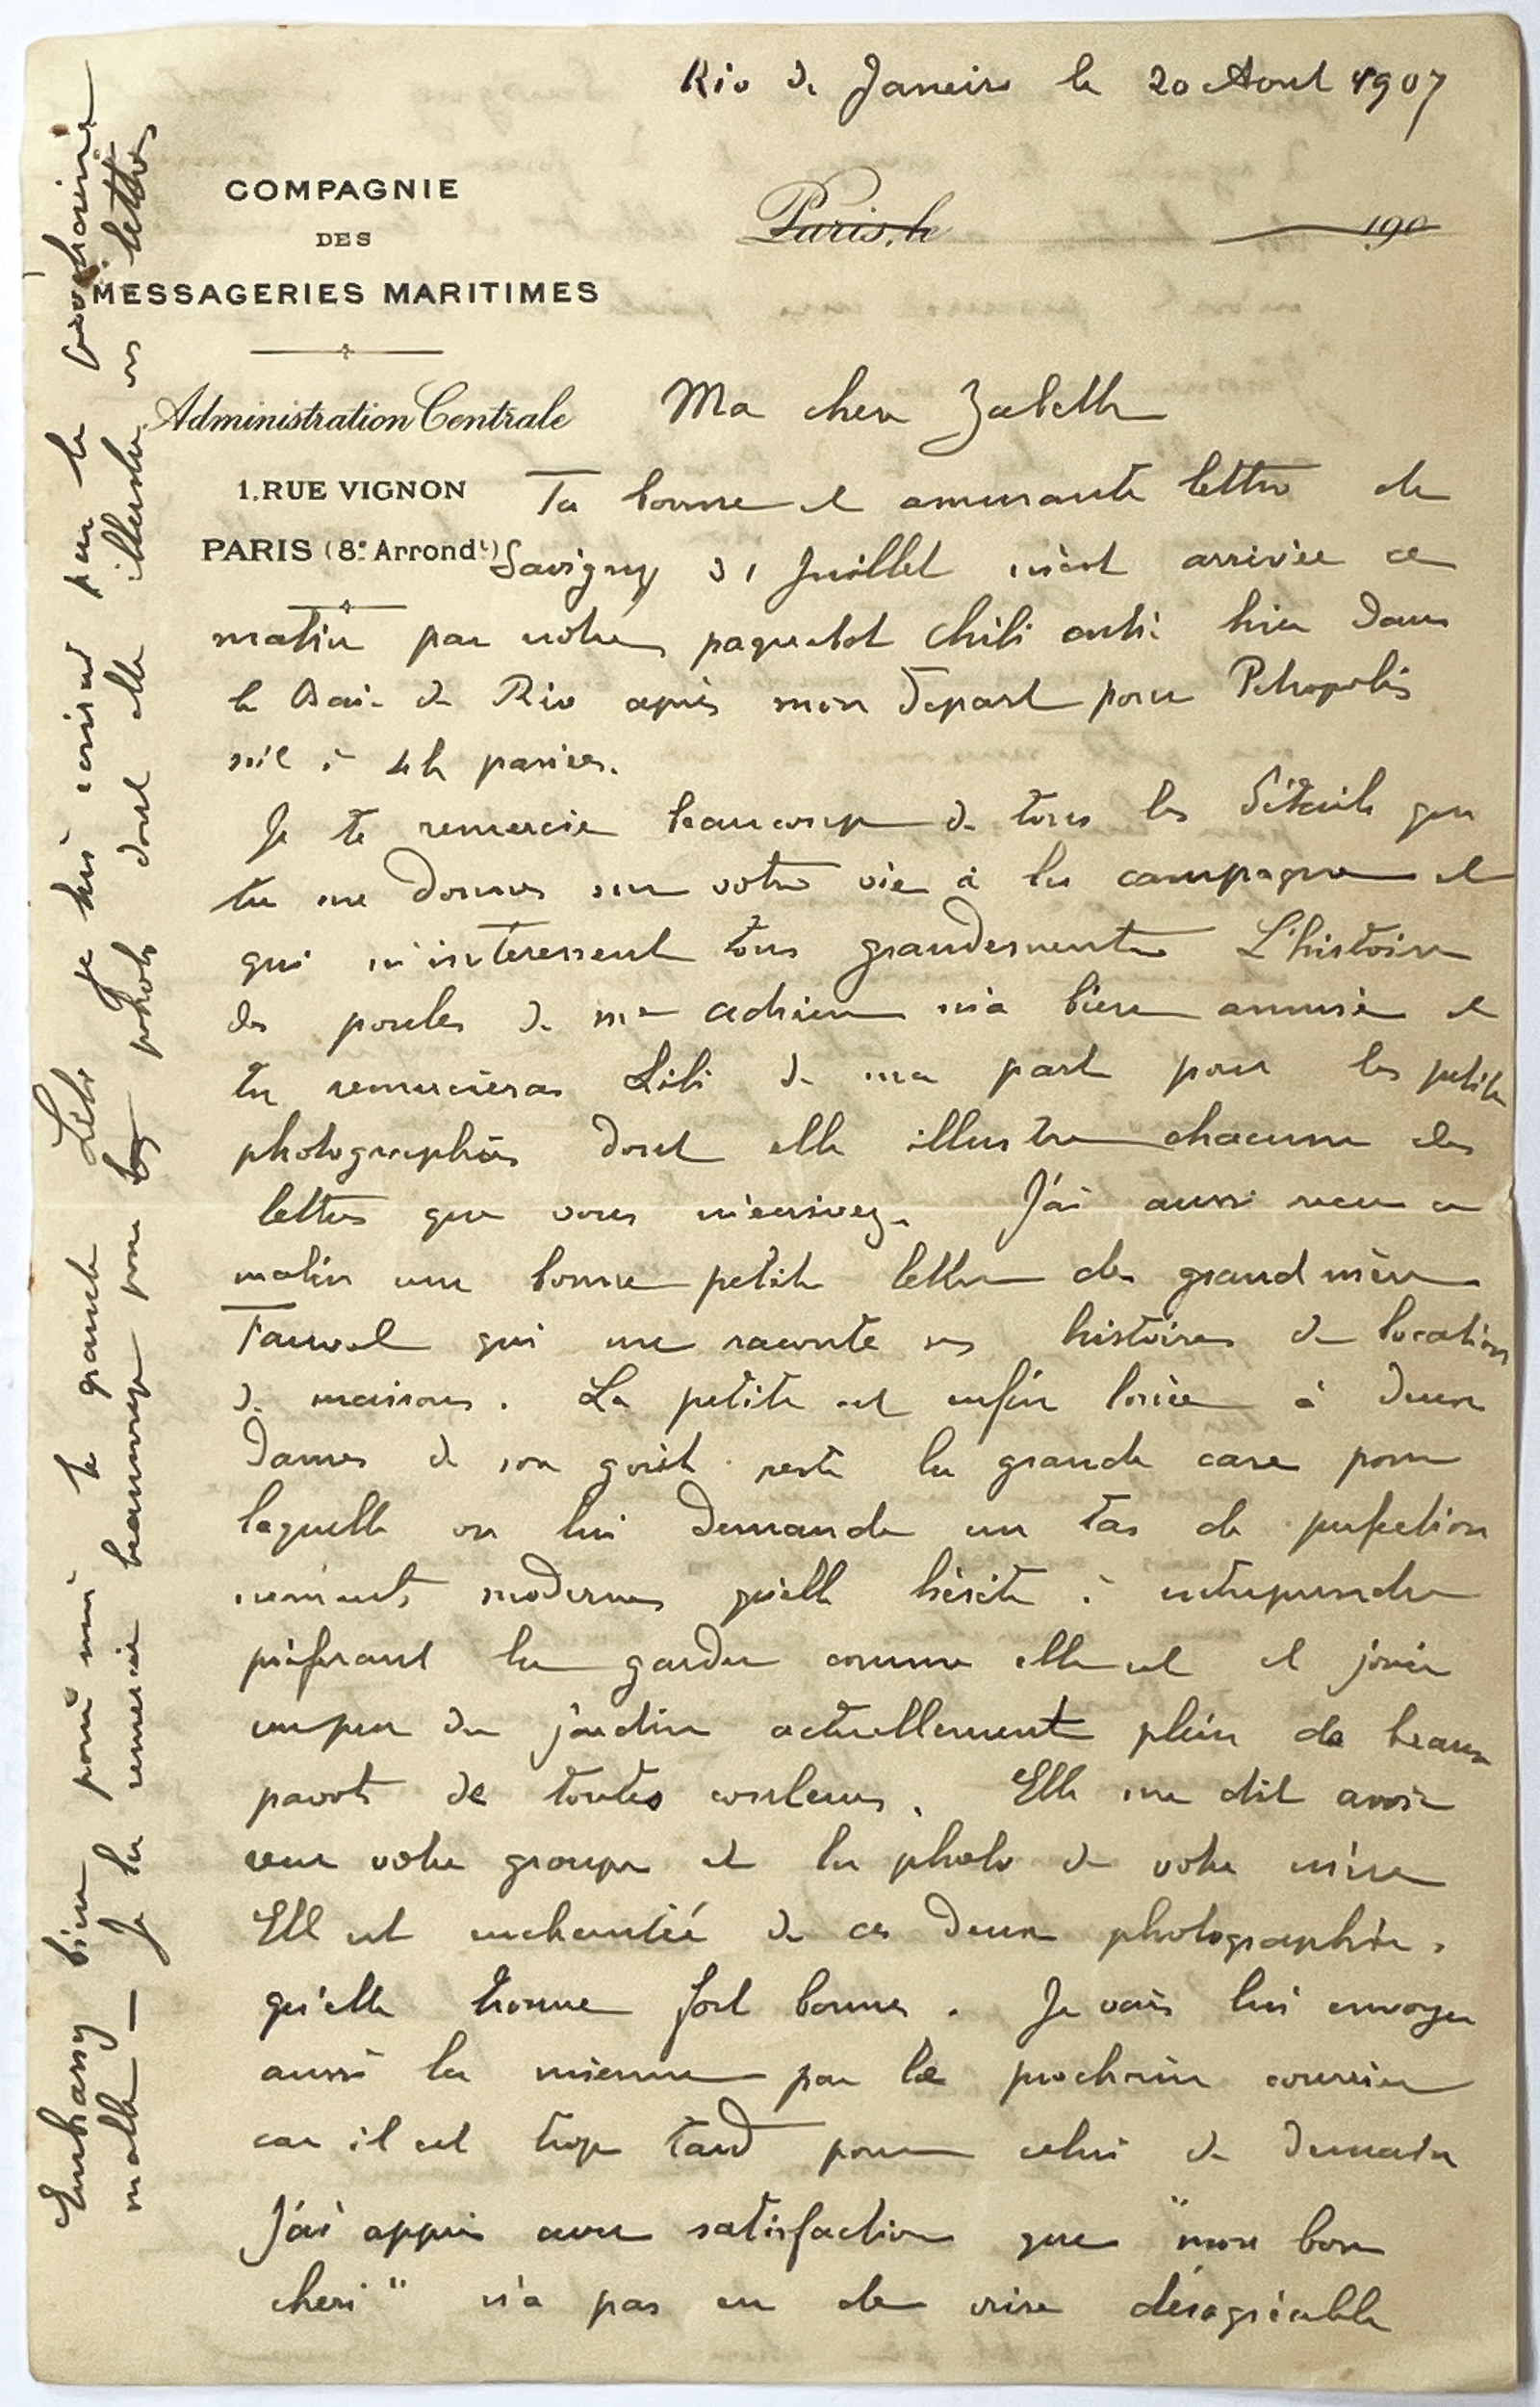 Rio de Janeiro le 20 Aout 1907
COMPAGNIE
DES
MESSAGERIES MARITIMES
Paris, le 190
Administration Centrale
1, RUE VIGNON
PARIS (8e Arrondt)
Ma chere Zabeth
Ta bonne et amusante lettre de
Savigny 31 Juillet m'est arrivée ce
matin par notre paquebot Chili entré hier dans
la Baie de Rio après mon départ pour Petropolis
soit à 4h passées.
Je te remercie beaucoup de tous les détails que
tu me donnes sur votre vie à la campagne et
qui m'interessent tous grandement L'histoire
des poules de Me Adrien m'a bien amusé et
tu remercieras Lili de ma part pour les petites
photographies dont elle illustre chacune des
lettres que vous m'ecrivez. J'ai aussi recu ce
matin une bonne petite lettre de grand mère
Fauvel qui me raconte ses histoires de location
de maisons. La petite est enfin louée à deux
dames de son goût reste la grande case pour
laquelle on lui demande un tas de perfection
nements modernes qu'elle hésite à entreprendre
préferant la garder comme elle est et jouir
un peu du jardin actuellement plein de beaux
pavots de toutes couleurs. Elle me dit avoir
recu votre groupe et la photo de votre mère
Elle est enchantée de ces deux photographies
qu'elle trouve fort bonnes. Je vais lui envoyer
aussi la mienne par le prochain courrier
car il est trop tard pour celui de demain
J'ai appris avec satisfaction que "mon bon
cheri" n'a pas eu de crise désagréable
Embrassez bien pour moi la grande Lili je lui ecrirai par la prochaine
malle — Je la remercie beaucoup pour les photos dont elle illustre vos lettres